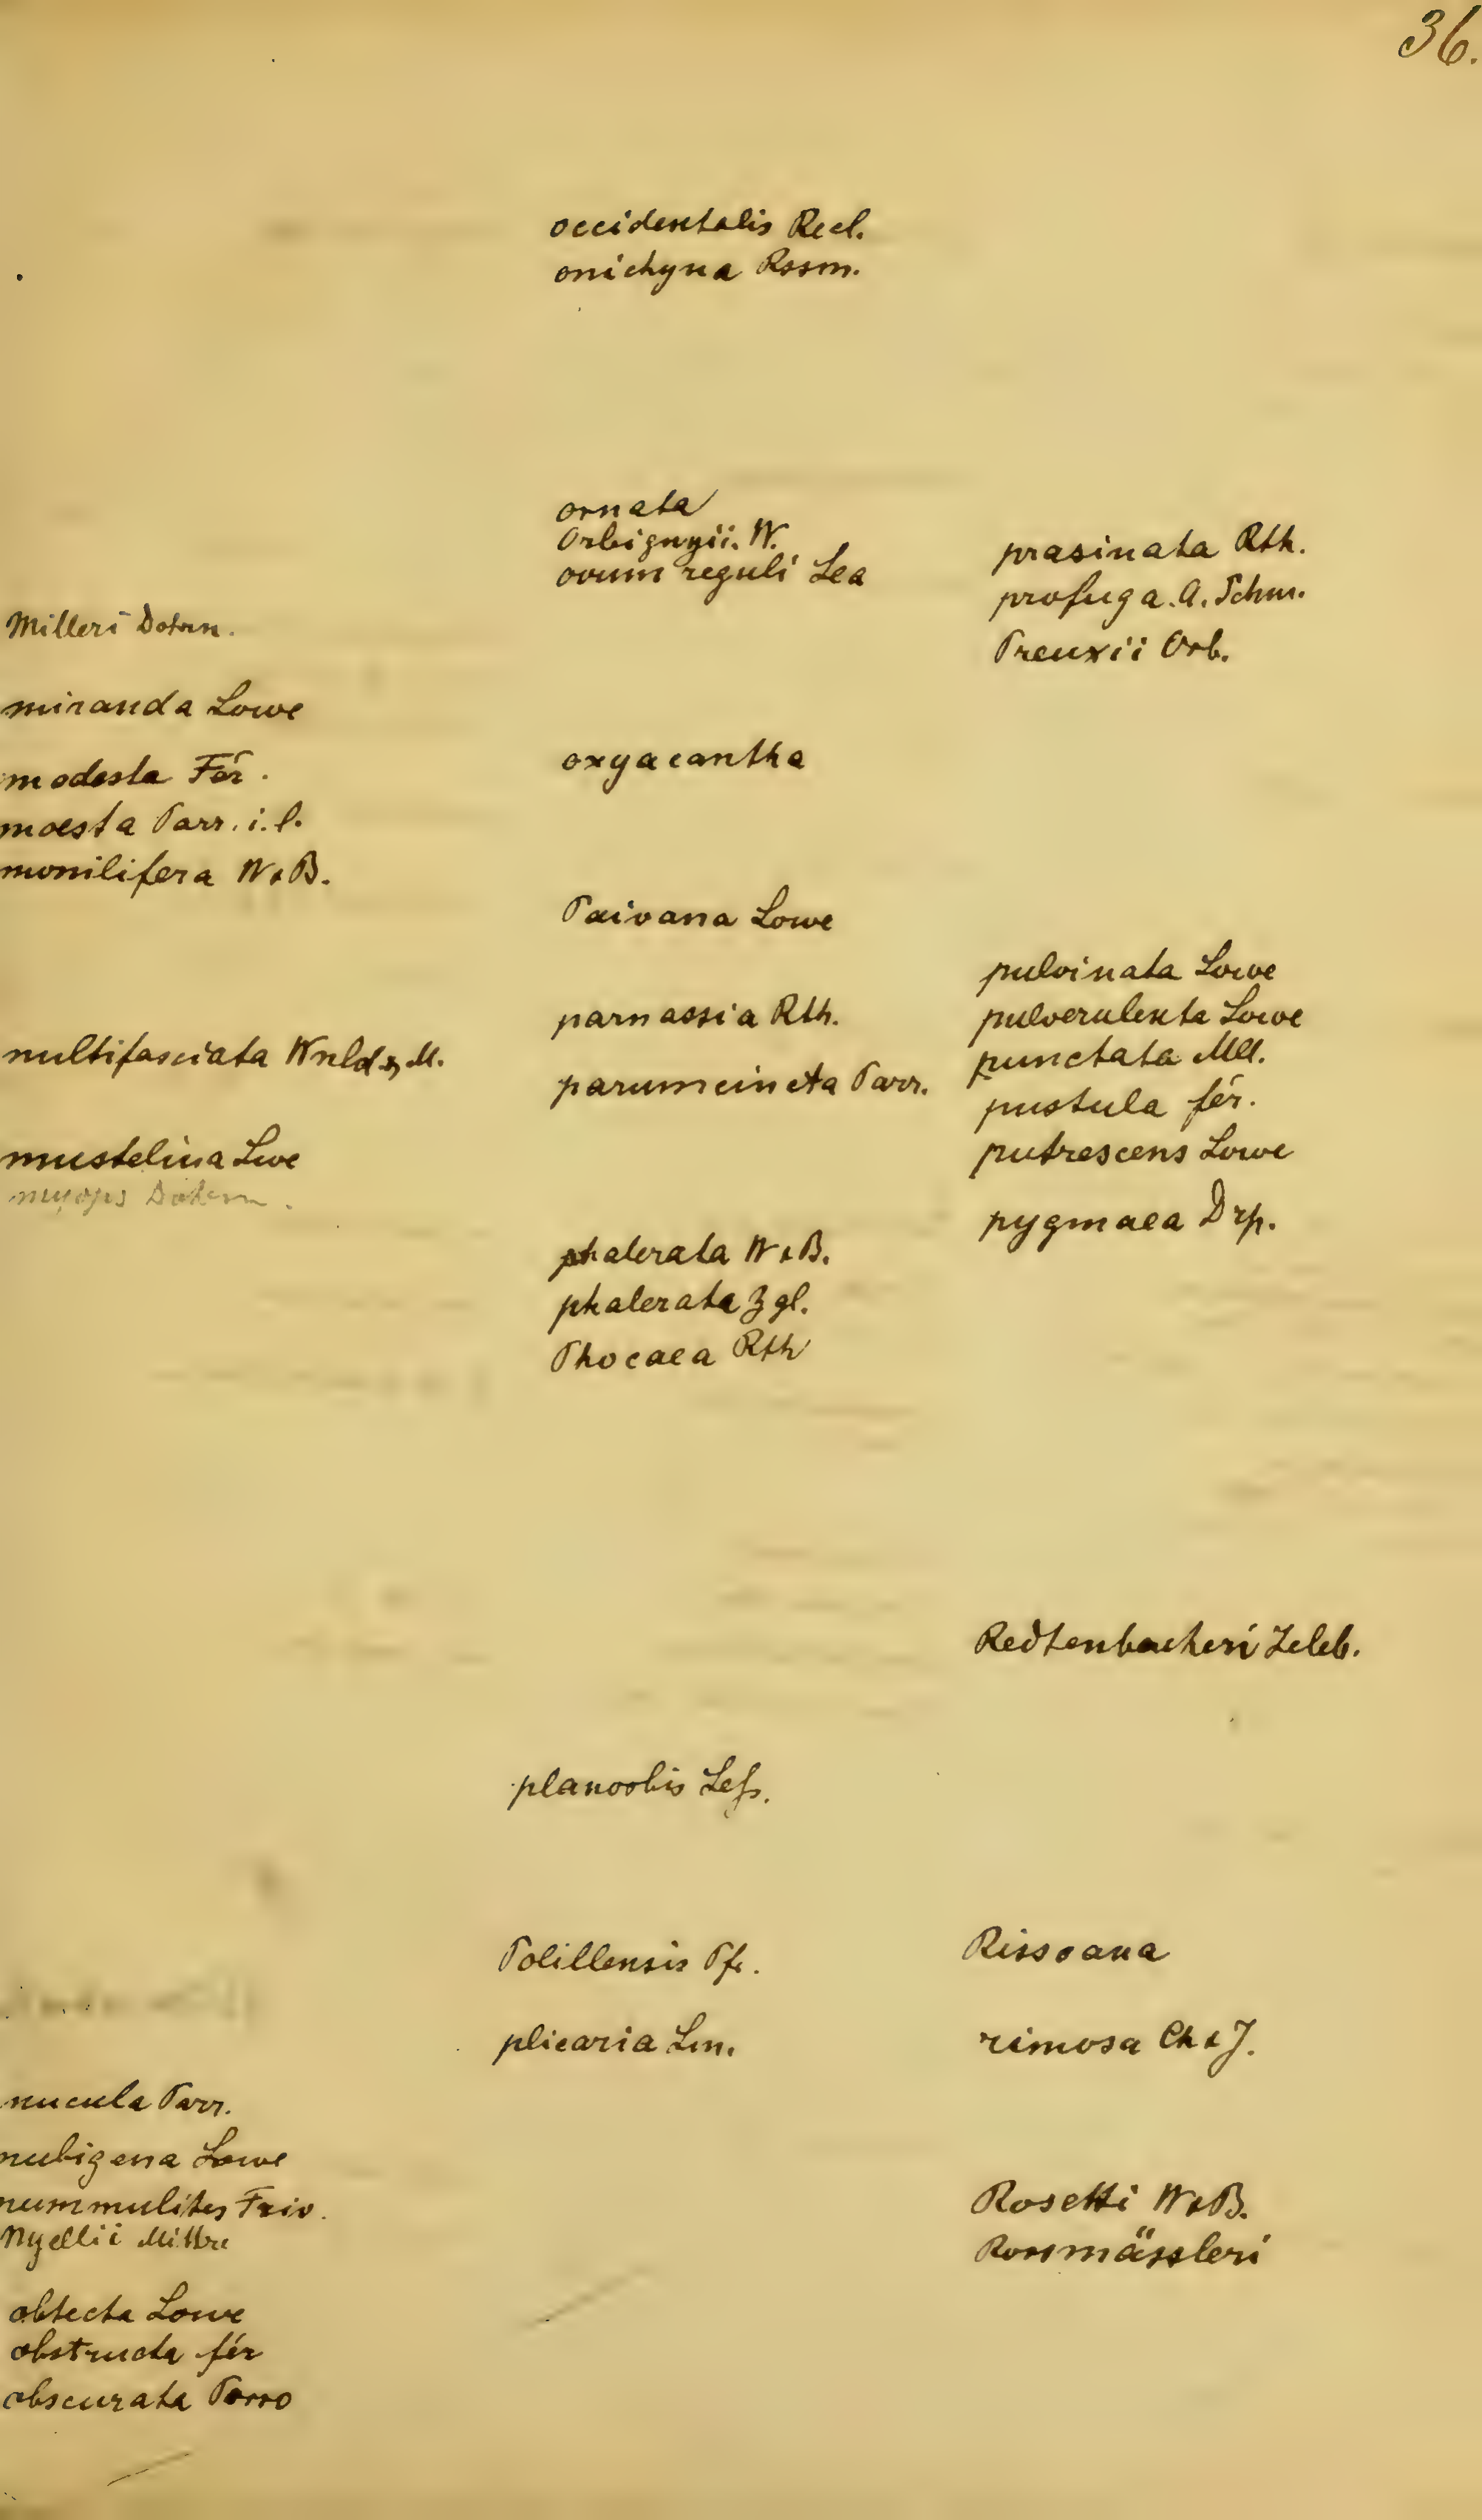 36.
Milleri Dohrn.
miranda Lowe
modesta Fér.
moesta Parr. i. l.
monilifera W & B.
multifasciata Wnld & M.
mustelina Lwe
myops Dohrn.
nucula Parr.
nubigena Lowe
nummulites Friv.
Nyellii Mittre
obtecta Lowe
obstructa fér
obscurata Porro
occidentalis Recl.
onichyna Rssm.
ornata
Orbignyii. W.
ovum reguli Lea
oxyacantha
Paivana Lowe
parnassia Rth.
parumcincta Parr.
phalerata W & B.
phalerata Zgl.
Phocaea Rth
planorbis Less.
Polillensis Pfr.
plicaria Lm.
prasinata Rth.
profuga. A. Schm.
Preuxii Orb.
pulvinata Lowe
pulverulenta Lowe
punctata Mll.
pustula fér.
putrescens Lowe
pygmaea Drp.
Redtenbacheri Zeleb.
Rissoana
rimosa Ch & J.
Rosetti W & B.
Rossmässleri